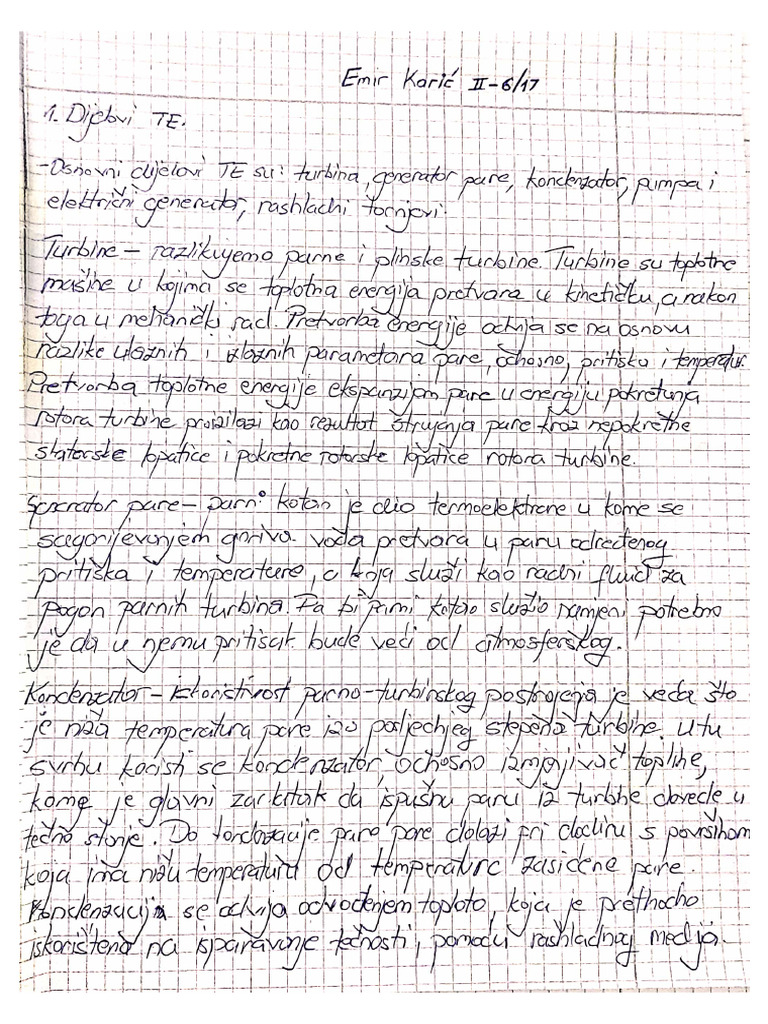 Emir Karić II-6/17
1. Dijelovi TE.
-Osnovni dijelovi TE su: turbina, generator pare, kondenzator, pumpa i
električni generator, rashladni tornjevi.
Turbine – razlikujemo parne i plinske turbine. Turbine su toplotne
mašine u kojima se toplotna energija pretvara u kinetičku, a nakon
toga u mehanički rad. Pretvorba energije odvija se na osnovu
razlike ulaznih i izlaznih parametara pare, odnosno, pritiska i temperatur.
Pretvorba toplotne energije ekspanzijom pare u energiju pokretanja
rotora turbine proizilazi kao rezultat strujanja pare kroz nepokretne
statorske lopatice i pokretne rotorske lopatice rotora turbine.
Generator pare – parni kotao je dio termoelektrane u kome se
sagorijevanjem goriva voda pretvara u paru određenog
pritiska i temperature, a koja služi kao radni fluid za
pogon parnih turbina. Da bi parni kotao služio namjeni potrebno
je da u njemu pritisak bude veći od atmosferskog.
Kondenzator – iskoristivost parno-turbinskog postrojenja je veća što
je niža temperatura pare iza posljednjeg stepena turbine. U tu
svrhu koristi se kondenzator, odnosno izmjenjivač topline,
kome je glavni zadatak da ispušnu paru iz turbine dovede u
tečno stanje. Do kondenzacije pare dolazi pri dodiru s površinom
koja ima nižu temperaturu od temperature zasićene pare.
Kondenzacija se odvija odvođenjem toplote, koja je prethodno
iskorištena na isparavanje tečnosti, pomoću rashladnog medija.